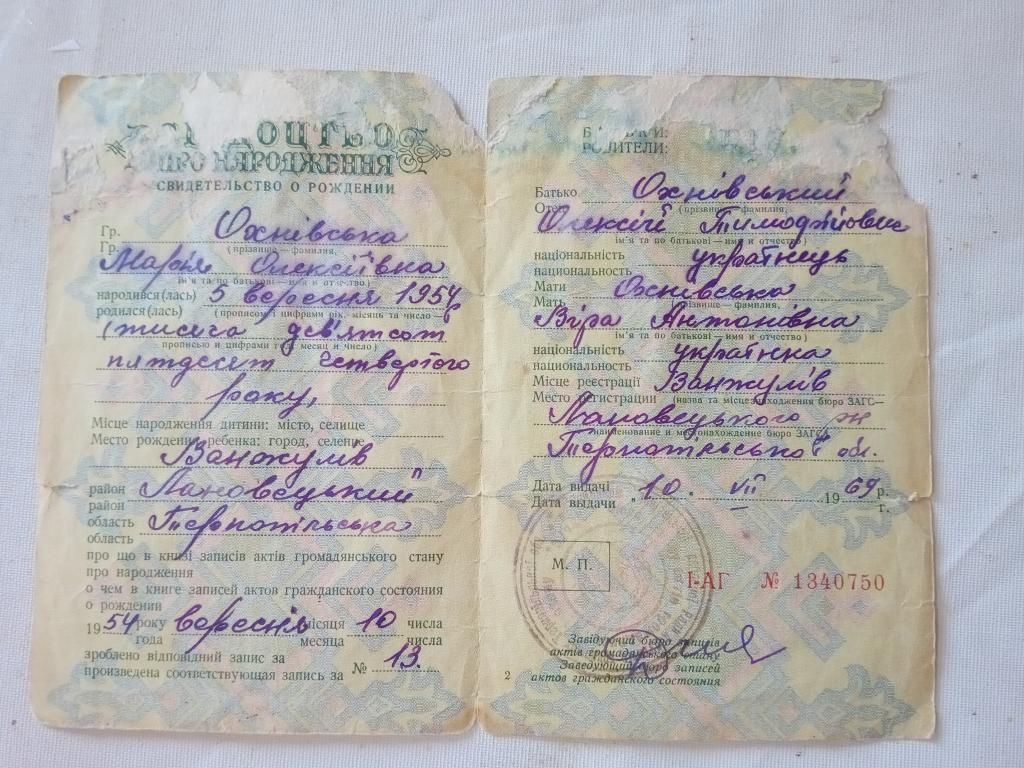 ПРО НАРОДЖЕННЯ
СВИДЕТЕЛЬСТВО О РОЖДЕНИИ
Гр. Охнівська
Гр. (прізвище—фамилия,
Марія Олексіївна
ім'я та по батькові—имя и отчество)
народився(лась) 5 вересня 1954
родился(лась) (прописом і цифрами рік, місяць та число—
(тисяча дев'ятсот
прописью и цифрами год, месяц и число)
пятдесят четвертого
року,
Місце народження дитини: місто, селище
Место рождения ребенка: город, селение
Ванжулів
район Лановецький
район
область Тернопільська
область
про що в книзі записів актів громадянського стану
про народження
о чем в книге записей актов гражданского состояния
о рождении
1954 року вересня місяця 10 числа
года месяца числа
зроблено відповідний запис за
произведена соответствующая запись за № 13.
БАТЬКИ:
РОДИТЕЛИ:
Батько Охнівський
Отец (прізвище—фамилия,
Олексій Тимофійович
ім'я та по батькові—имя и отчество)
національність українець
национальность
Мати Охнівська
Мать (прізвище—фамилия,
Віра Антонівна
ім'я та по батькові—имя и отчество)
національність українка
национальность
Місце реєстрації Ванжулів
Место регистрации (назва та місцезнаходження бюро ЗАГС—
Лановецького
наименование и местонахождение бюро ЗАГС)
Тернопільської обл.
Дата видачі „10. VII 1969 р.
Дата выдачи г.
М. П.
І-АГ № 1340750
Завідуючий бюро записів
актів громадянського стану
Заведующий бюро записей
актов гражданского состояния
2